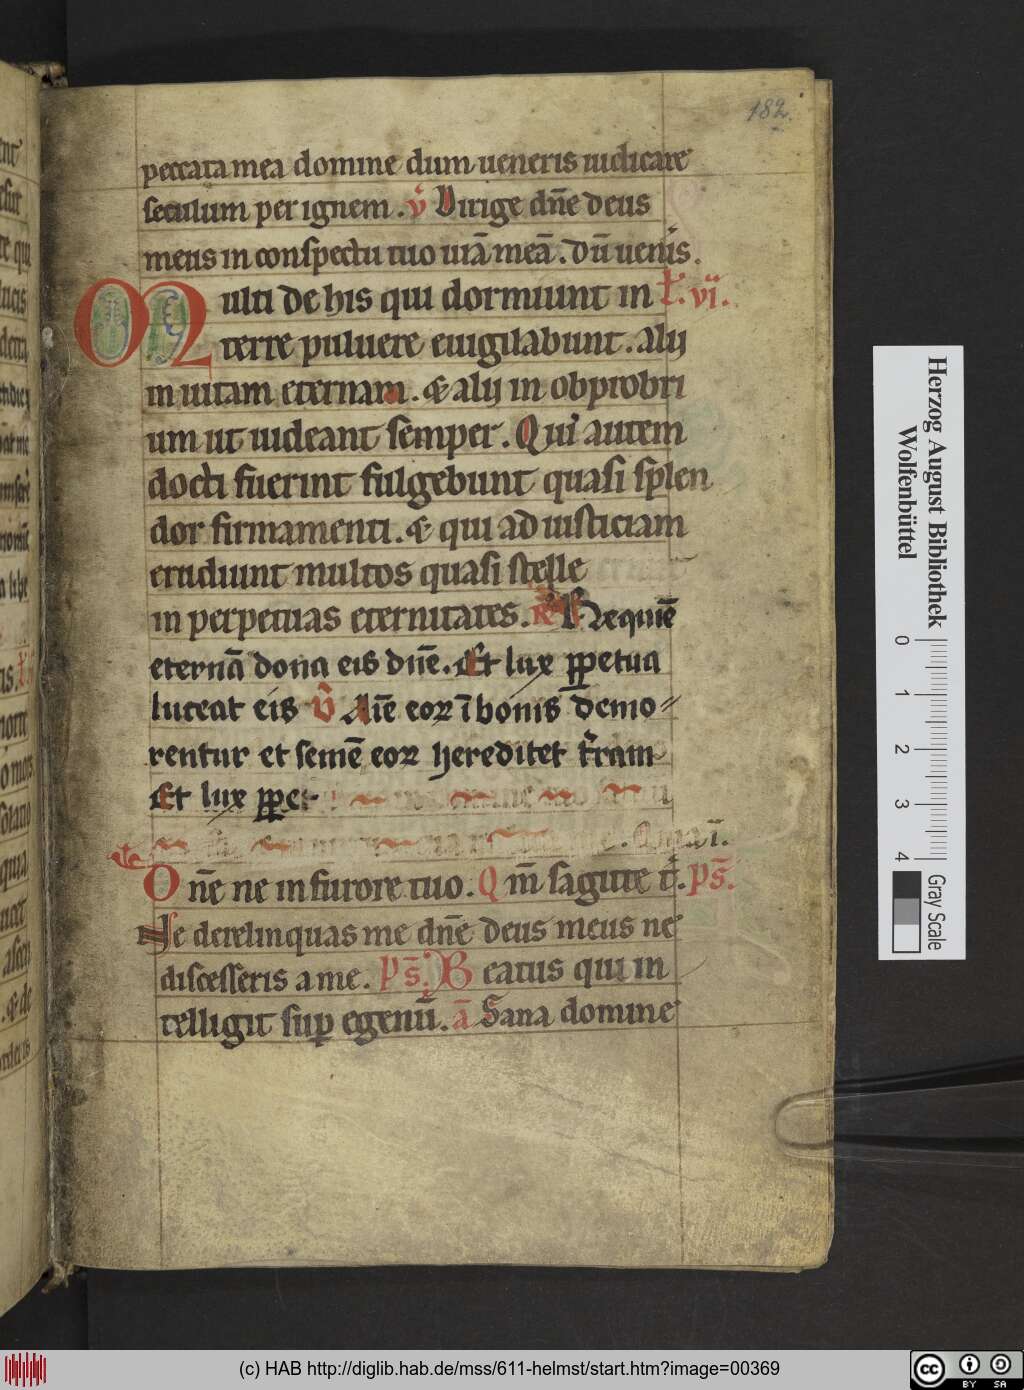 182
peccata mea domine dum ueneris iudicare
seculum per ignem. v̄ Dirige dn̄e deus
meus in conspectu tuo uiā meā. Dū uenis.
Multi de his qui dormiunt in l. vii.
terre puluere euigilabunt. alij
in uitam eternam. & alij in obprobri
um ut uideant semper. Qui autem
docti fuerint fulgebunt quasi splen
dor firmamenti. & qui ad iusticiam
erudiunt multos quasi stelle
in perpetuas eternitates. R̄ Requiē
eternā dona eis dn̄e. Et lux ꝑpetua
luceat eis v̄ Aīe eoꝝ ī bonis demo⸗
rentur et semē eoꝝ hereditet t̄ram
Et lux ꝑpet
Dn̄e ne in furore tuo. Qm̄ sagitte t̄. ps̄.
Ne derelinquas me dn̄e deus meus ne
discesseris a me. ps̄. Beatus qui in
telligit suꝑ egenū. ā Sana domine
Herzog August Bibliothek
Wolfenbüttel
0 1 2 3 4
Gray Scale
(c) HAB http://diglib.hab.de/mss/611-helmst/start.htm?image=00369
cc BY SA